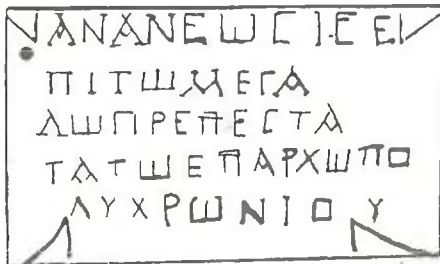 ΑΝΑΝΕΩϹΙϹΕΙ
ΠΙΤΩΜΕΓΑ
ΛΩΠΡΕΠΕϹΤΑ
ΤΑΤΩΕΠΑΡΧΩΠΟ
ΛΥΧΡΩΝΙΟΥ